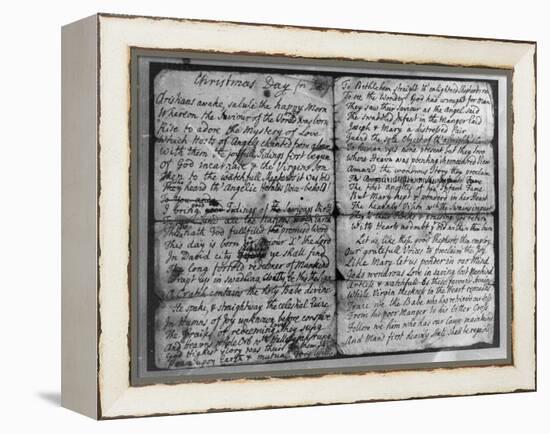 Christmas Day for Dolly
Christians awake, salute the happy Morn
Whereon the Saviour of the World was born
Rise to adore the Mystery of Love
Which Hosts of Angels chanted from above
With them the joyfull Tidings first begun
of God incarnate & the Virgins Son
Then to the watchfull Shepherds it was told
Who heard th' Angelic Herald's Voice behold
I bring good Tidings of the Saviours Birth
To you and all the Nations
This Day hath God fullfilled the promised Word
This day is born a Saviour the Lord
In David's city ye shall find
The long foretold redeemer of Mankind
Wrapt up in swaddling Cloaths
A Cratch contains the Holy Babe divine
He spake, & straightway the celestial Quire
In Hymns of joy unknown before conspire
The Praises of redeeming Love they sung
And Heavns whole Orb with Hallelujahs rung
Gods Highest Glory was their
Peace upon Earth & mutual Good Will
To Bethlehem straight th' enlightned Shepherds ran
To see the Wonder God had wrought for Man
They saw their Saviour as the Angel said
The Swaddled Infant in the Manger laid
Joseph & Mary a distressed Pair
Guard the sole Object of th'
To human eyes none present but they two
Where Heavn was pointing its concentred View
Amaz'd the wondrous Story they proclaim
The first Apostles of his Infant Fame
But Mary kept & ponder'd in her Heart
The heav'nly Vision wch the Swains impart
They to their Flocks & praising God return
With Hearts no doubt that did within them burn
Let us like these good Shepherds then employ
Our grateful Voices to proclaim the Joy
Like Mary let us ponder in our Mind
Gods wondrous Love in saving lost Mankind
Artless & watchfull as these favour'd Swains
While Virgin Meekness in the Heart remains
Trace we the Babe who has retriev'd our Loss
From his poor Manger to his bitter Cross
Follow we him who has our Cause maintain'd
And Man's first heav'nly State shall be regain'd